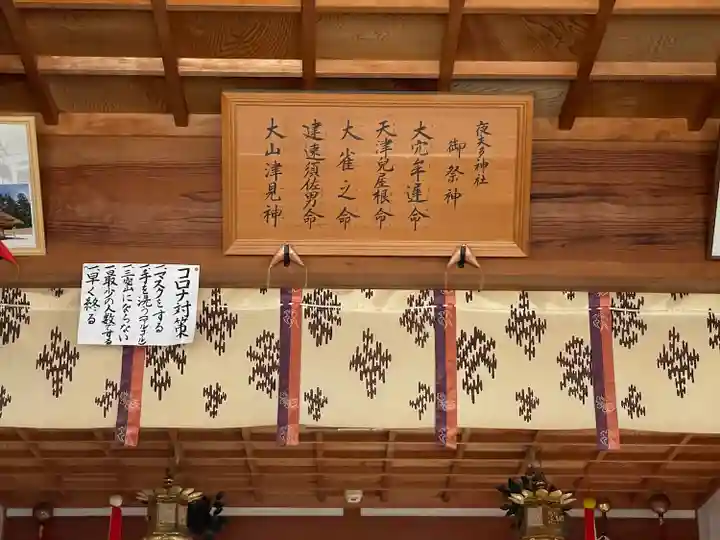 夜夫多神社
御祭神
大穴牟遅命
天津児屋根命
大雀之命
建速須佐男命
大山津見神
コロナ対策
一マスクをする
一手を洗う(アルコール)
一三密にならない
一最少の人数でする
一早く終る